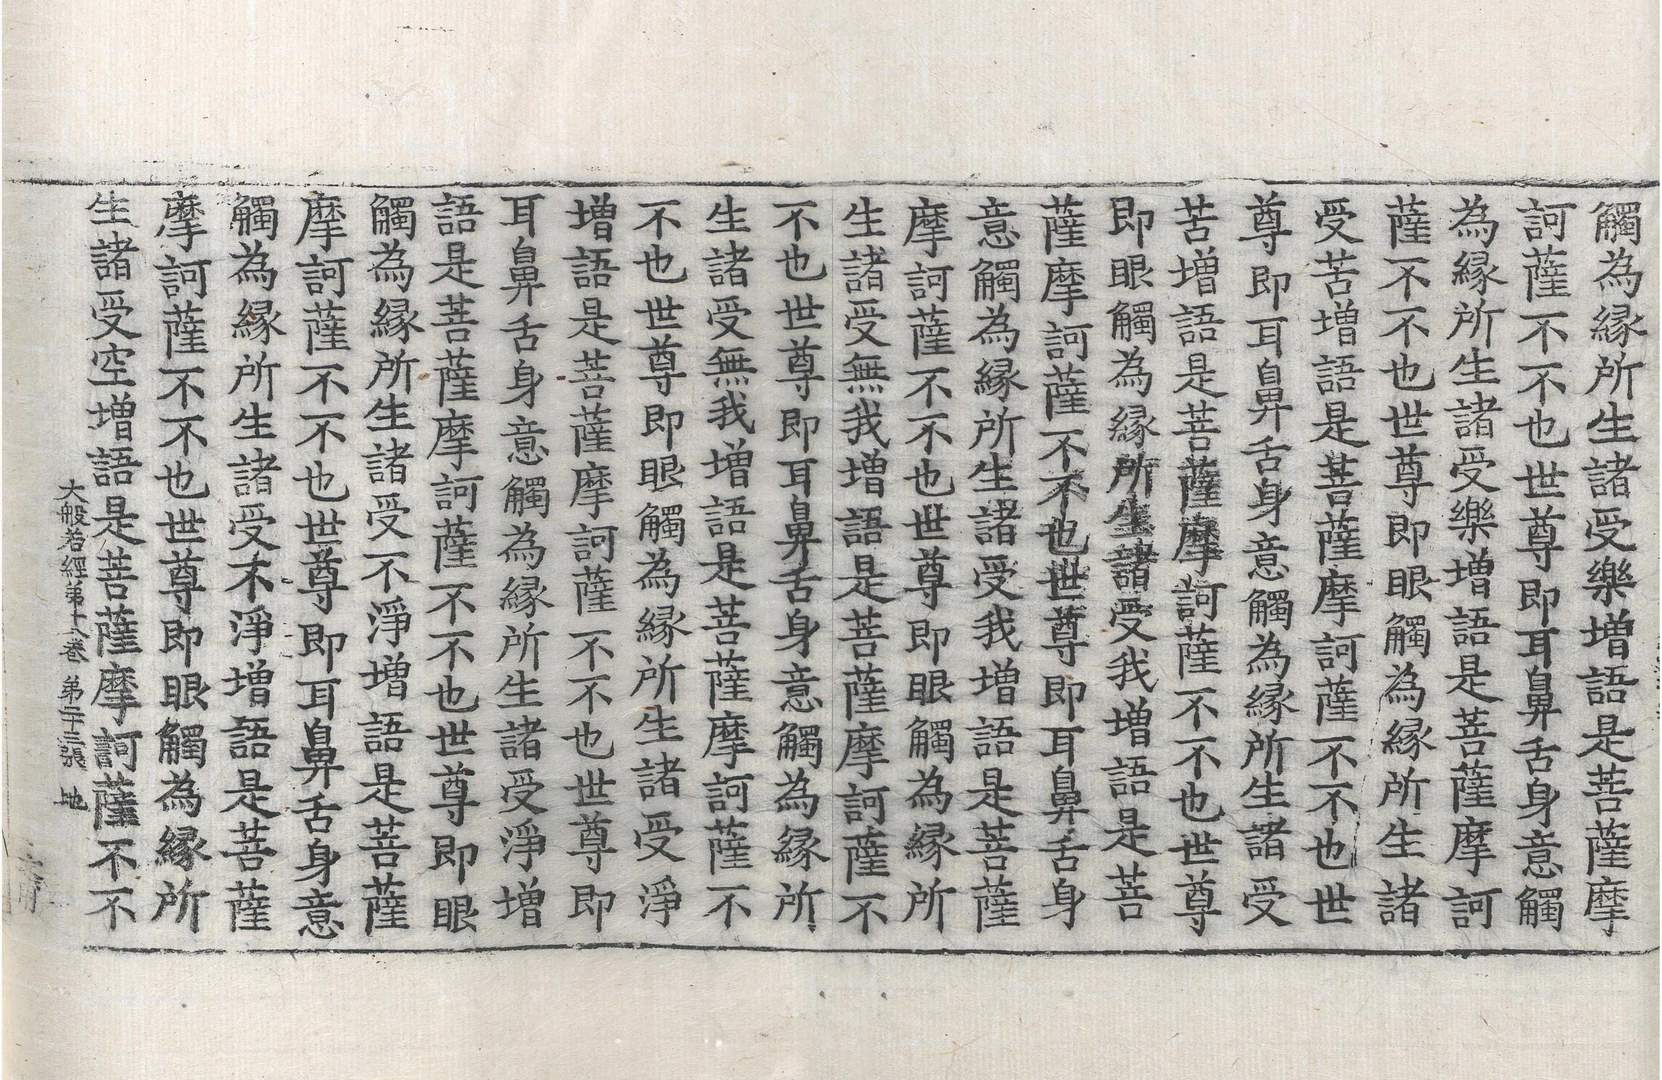 觸為縁所生諸受樂增語是菩薩摩
訶薩不不也世尊即耳鼻舌身意觸
為縁所生諸受樂增語是菩薩摩訶
薩不不也世尊即眼觸為縁所生諸
受苦增語是菩薩摩訶薩不不也世
尊即耳鼻舌身意觸為縁所生諸受
苦增語是菩薩摩訶薩不不也世尊
即眼觸為縁所生諸受我增語是菩
薩摩訶薩不不也世尊即耳鼻舌身
意觸為縁所生諸受我增語是菩薩
摩訶薩不不也世尊即眼觸為縁所
生諸受無我增語是菩薩摩訶薩不
不也世尊即耳鼻舌身意觸為縁所
生諸受無我增語是菩薩摩訶薩不
不也世尊即眼觸為縁所生諸受淨
增語是菩薩摩訶薩不不也世尊即
耳鼻舌身意觸為縁所生諸受淨增
語是菩薩摩訶薩不不也世尊即眼
觸為縁所生諸受不淨增語是菩薩
摩訶薩不不也世尊即耳鼻舌身意
觸為縁所生諸受不淨增語是菩薩
摩訶薩不不也世尊即眼觸為縁所
生諸受空增語是菩薩摩訶薩不不
大般若經第十八卷 第二十三張 地